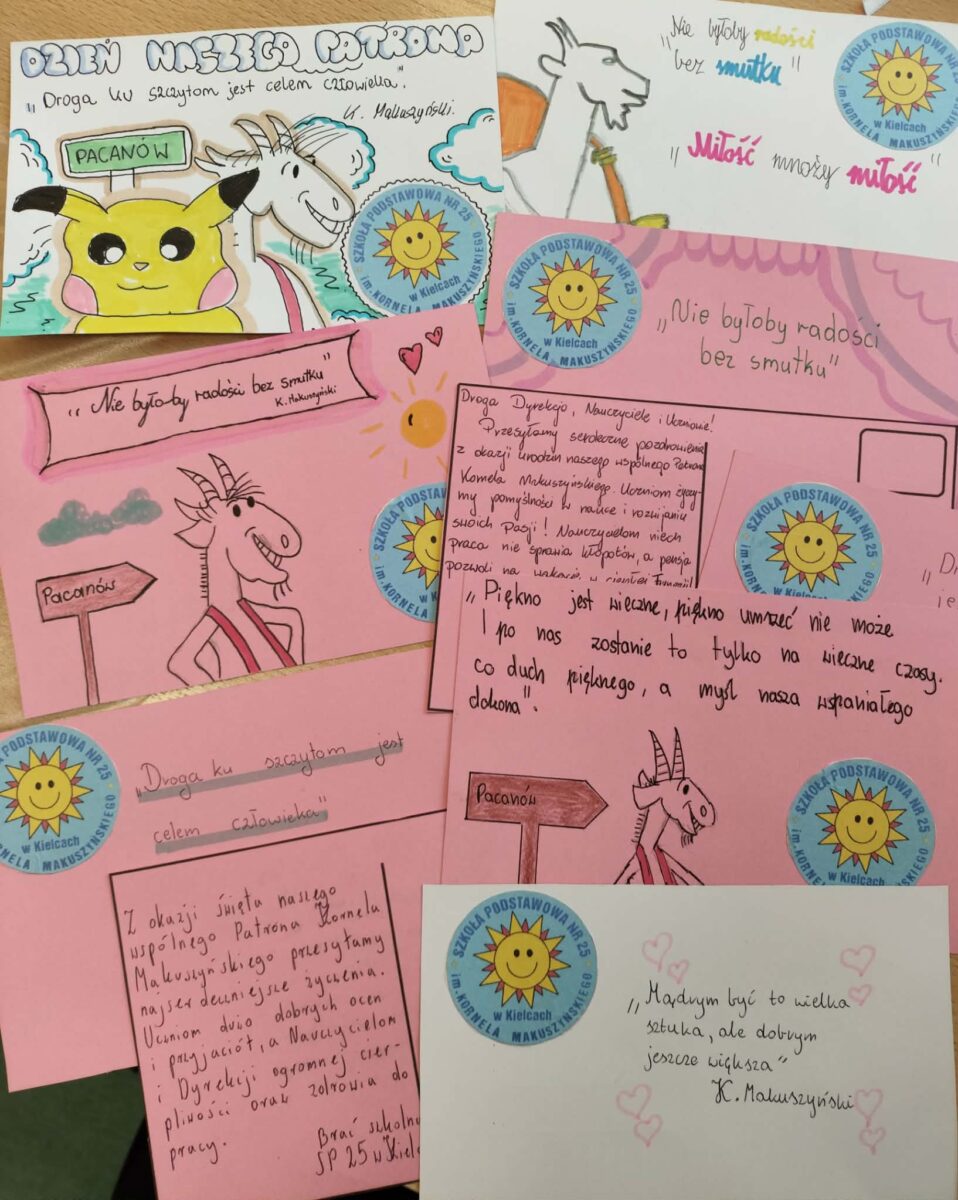 DZIEŃ NASZEGO PATRONA
„Droga ku szczytom jest celem człowieka."
K. Makuszyński.
PACANÓW
SZKOŁA PODSTAWOWA NR 25
im. KORNELA MAKUSZYŃSKIEGO
w Kielcach
„Nie byłoby radości
bez smutku"
„Miłość mnoży miłość"
SZKOŁA PODSTAWOWA NR 25
im. KORNELA MAKUSZYŃSKIEGO
w Kielcach
SZKOŁA PODSTAWOWA NR 25
im. KORNELA MAKUSZYŃSKIEGO
w Kielcach
„Nie byłoby radości
bez smutku"
„Nie byłoby radości bez smutku"
K. Makuszyński
Pacanów
SZKOŁA PODSTAW
im. KORNELA
w Kiel
Droga Dyrekcjo, Nauczyciele i Uczniowie!
Przesyłamy serdeczne pozdrowienia
z okazji urodzin naszego wspólnego Patrona
Kornela Makuszyńskiego. Uczniom życzy-
my pomyślności w nauce i rozwijaniu
swoich Pasji! Nauczycielom niech
praca nie sprawia kłopotów, a pensja
pozwoli na wakacje w
SZKOŁA PODSTAWOWA NR 25
im. KORNELA MAKUSZYŃSKIEGO
„D
je
„Piękno jest wieczne, piękno umrzeć nie może
I po nas zostanie to tylko na wieczne czasy.
co duch pięknego, a myśl nasza wspaniałego
dokona".
Pacanów
SZKOŁA PODSTAWOWA NR 25
im. KORNELA MAKUSZYŃSKIEGO
w Kielcach
PODSTAWOWA NR 25
KORNELA MAKUSZYŃSKIEGO
w Kielcach
„Droga ku szczytom jest
celem człowieka"
Z okazji święta naszego
wspólnego Patrona Kornela
Makuszyńskiego przesyłamy
najserdeczniejsze życzenia.
Uczniom dużo dobrych ocen
i przyjaciół, a Nauczycielom
i Dyrekcji ogromnej cier-
pliwości oraz zdrowia do
pracy.
Brać szkoln
SP 25 w Kielc
SZKOŁA PODSTAWOWA NR 25
im. KORNELA MAKUSZYŃSKIEGO
w Kielcach
„Mądrym być to wielka
sztuka, ale dobrym
jeszcze większa"
K. Makuszyński